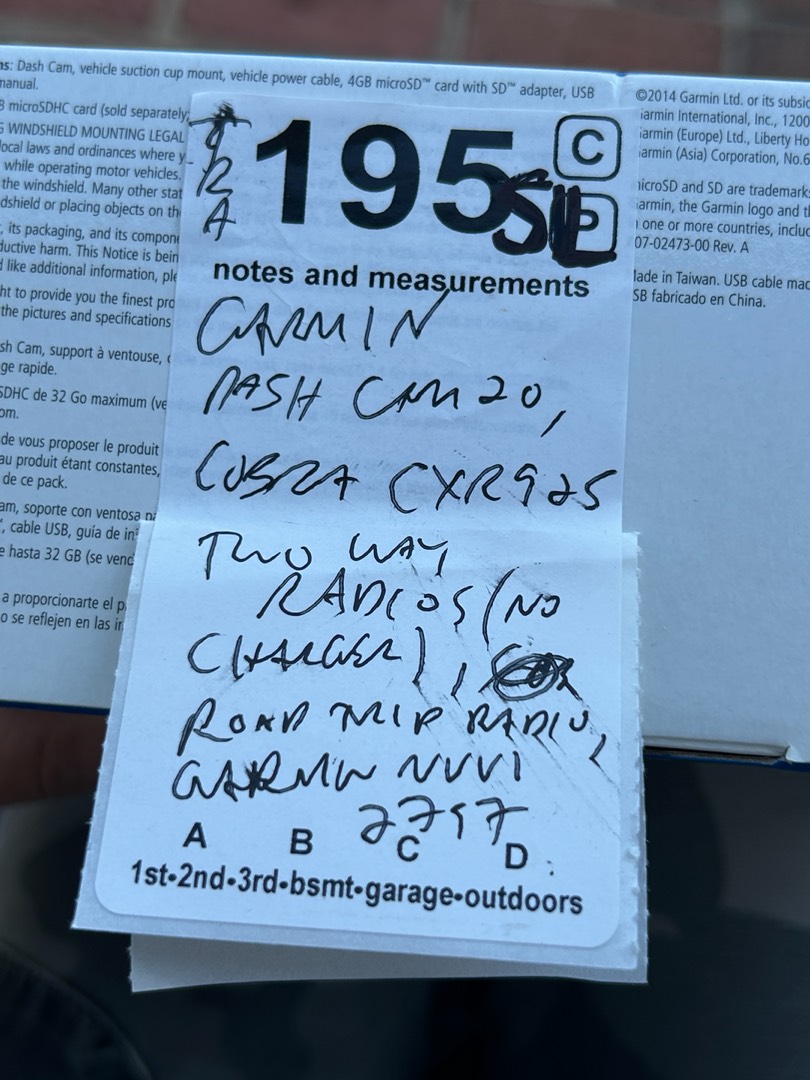 ns: Dash Cam, vehicle suction cup mount, vehicle power cable, 4GB microSD™ card with SD™ adapter, USB
manual.
B microSDHC card (sold separately
G WINDSHIELD MOUNTING LEGAL
local laws and ordinances where y
while operating motor vehicles.
the windshield. Many other stat
dshield or placing objects on th
, its packaging, and its compon
ductive harm. This Notice is bein
d like additional information, ple
ht to provide you the finest pro
the pictures and specifications
sh Cam, support à ventouse,
ge rapide.
SDHC de 32 Go maximum (ve
om.
de vous proposer le produit
au produit étant constantes,
de ce pack.
am, soporte con ventosa pa
, cable USB, guía de in
e hasta 32 GB (se venc
a proporcionarte el p
o se reflejen en las in
©2014 Garmin Ltd. or its subsic
armin International, Inc., 1200
armin (Europe) Ltd., Liberty Ho
armin (Asia) Corporation, No.6
microSD and SD are trademark
armin, the Garmin logo and
one or more countries, includ
07-02473-00 Rev. A
Made in Taiwan. USB cable mac
SB fabricado en China.
12
A
195 C
P
notes and measurements
GARMIN
DASH CAM 20,
COBRA CXR925
TWO WAY
RADIOS (NO
CHARGER),
ROAD TRIP RADIO,
GARMIN NUVI
2797
A B C D
1st•2nd•3rd•bsmt•garage•outdoors